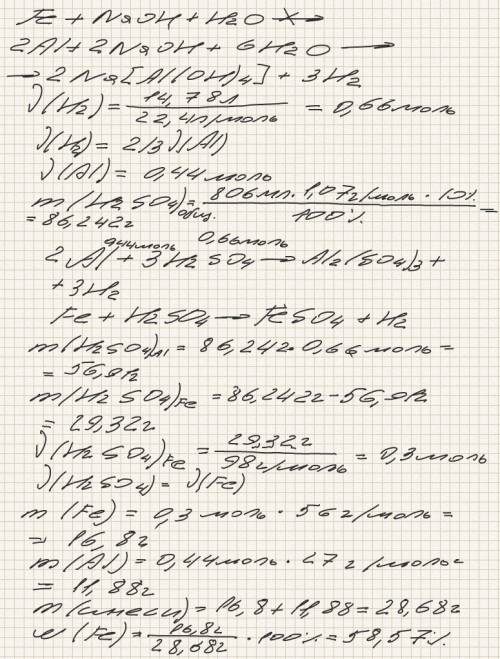 Fe + NaOH + H2O ⇸
2Al + 2NaOH + 6H2O →
→ 2Na[Al(OH)4] + 3H2
ν(H2) = 14,78л / 22,4л/моль = 0,66моль
ν(H2) = 2/3 ν(Al)
ν(Al) = 0,44моль
m(H2SO4)общ. = 806мл · 1,07г/моль · 10% / 100% =
= 86,242г
0,44моль 0,66моль
2Al + 3H2SO4 → Al2(SO4)3 +
+ 3H2
Fe + H2SO4 → FeSO4 + H2
m(H2SO4)Al = 86,242 · 0,66моль =
= 56,92г
m(H2SO4)Fe = 86,242г - 56,92г
= 29,32г
ν(H2SO4)Fe = 29,32г / 98г/моль = 0,3моль
ν(H2SO4) = ν(Fe)
m(Fe) = 0,3 моль · 56г/моль =
= 16,8г
m(Al) = 0,44моль · 27г/моль =
= 11,88г
m(смеси) = 16,8 + 11,88 = 28,68г
w(Fe) = 16,8г / 28,68г · 100% = 58,57%